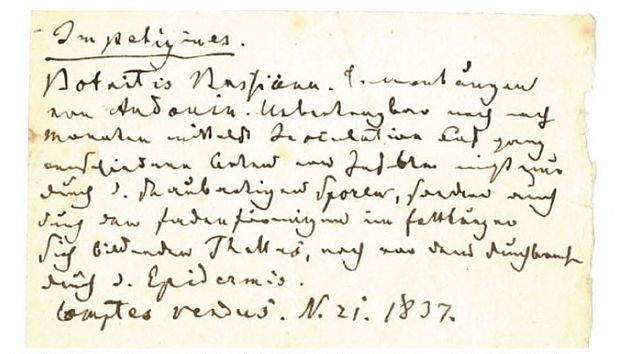 Impetigines.
Botritis Bassiana.
von Audouin. Uebertragbar noch nach
Monaten mittelst Inoculation auf ganz
verschiedene Arten von Insekten nicht nur
durch d. staubartigen Sporen, sondern auch
durch den fadenförmigen im Fettkörper
sich bildenden Thallus, noch vor dem Durchbruche
durch d. Epidermis.
Comptes rendus. N. 21. 1837.